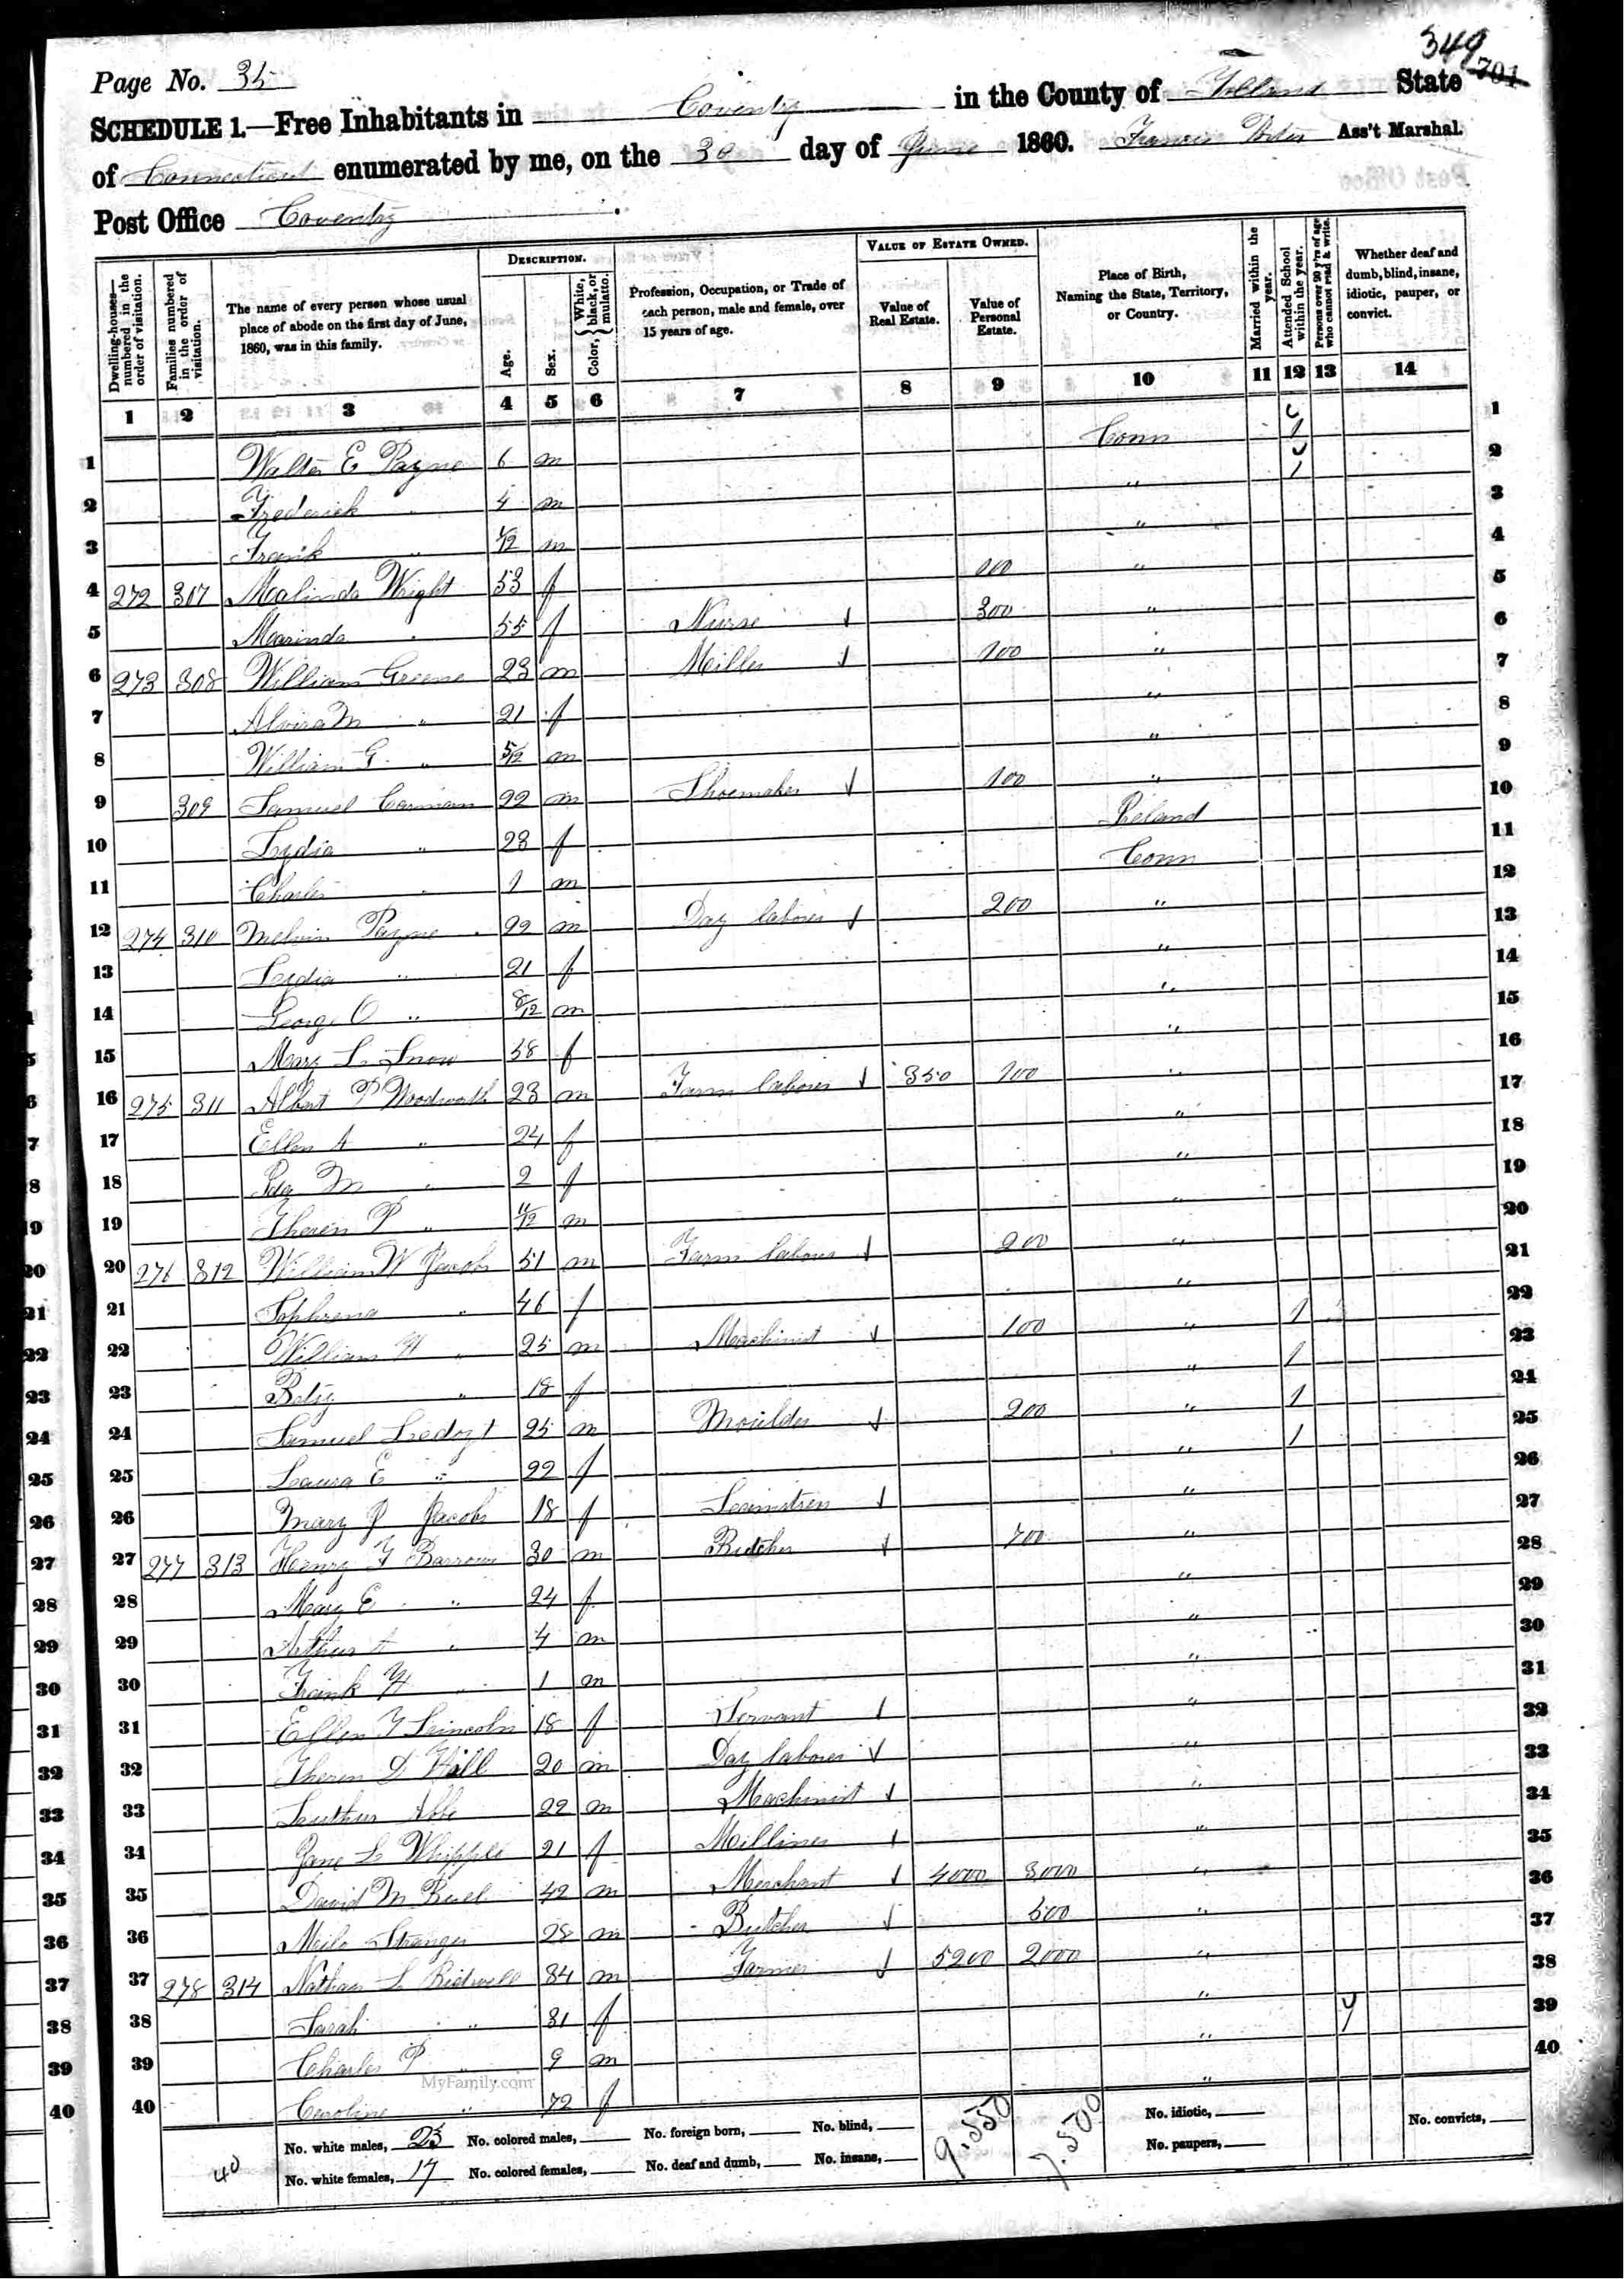 349
701
Page No. 35
SCHEDULE 1.—Free Inhabitants in Coventry in the County of Tolland State
of Connecticut enumerated by me, on the 30 day of June 1860. Francis Porter Ass't Marshal.
Post Office Coventry
Dwelling-houses—numbered in the order of visitation.
Families numbered in the order of visitation.
The name of every person whose usual place of abode on the first day of June, 1860, was in this family.
DESCRIPTION.
Age.
Sex.
Color, { White, black, or mulatto.
Profession, Occupation, or Trade of each person, male and female, over 15 years of age.
VALUE OF ESTATE OWNED.
Value of Real Estate.
Value of Personal Estate.
Place of Birth, Naming the State, Territory, or Country.
Married within the year.
Attended School within the year.
Persons over 20 y'rs of age who cannot read & write.
Whether deaf and dumb, blind, insane, idiotic, pauper, or convict.
1 2 3 4 5 6 7 8 9 10 11 12 13 14
1 Walter E Payne 6 m Conn 1
2 Frederick " 4 m " 1
3 Frank " 1/12 m "
4 272 307 Malinda Wright 53 f 100 "
5 Marinda " 55 f Nurse 300 "
6 273 308 William Greene 23 m Miller 100 "
7 Alvira M " 21 f "
8 William G " 5/12 m "
9 309 Samuel Carman 22 m Shoemaker 100 "
10 Lydia " 23 f Ireland
11 Charles " 1 m Conn
12 274 310 Melvin Payne 22 m Day laborer 200 "
13 Lydia " 21 f "
14 George O " 8/12 m "
15 Mary L Snow 58 f "
16 275 311 Albert P Woodworth 23 m Farm laborer 350 100 "
17 Ellen A " 24 f "
18 Ida M " 2 f "
19 Theren P " 11/12 m "
20 276 312 William W Jacobs 51 m Farm laborer 200 "
21 Sophrena " 46 f "
22 William H " 25 m Machinist 100 " 1
23 Betsy " 18 f " 1
24 Samuel Ledoyt 25 m Moulder 200 " 1
25 Laura E " 22 f " 1
26 Mary J Jacobs 18 f Seamstress "
27 277 313 Henry F Barrows 30 m Butcher 700 "
28 Mary E " 24 f "
29 Arthur A " 4 m "
30 Frank H " 1 m "
31 Ellen F Lincoln 18 f Servant "
32 Theren D Hall 20 m Day laborer "
33 Luther Abbe 22 m Machinist "
34 Jane L Whipple 21 f Milliner "
35 David M Buel 42 m Merchant 4000 3000 "
36 Milo Stranger 28 m Butcher 500 "
37 278 314 Nathan L Bidwell 34 m Farmer 5200 2000 "
38 Sarah " 31 f "
39 Charles P " 9 m "
40 Caroline " 72 f "
MyFamily.com
No. white males, 23 No. colored males, No. foreign born, No. blind, 9.550 7.500 No. idiotic, No. convicts,
40 No. white females, 17 No. colored females, No. deaf and dumb, No. insane, No. paupers,